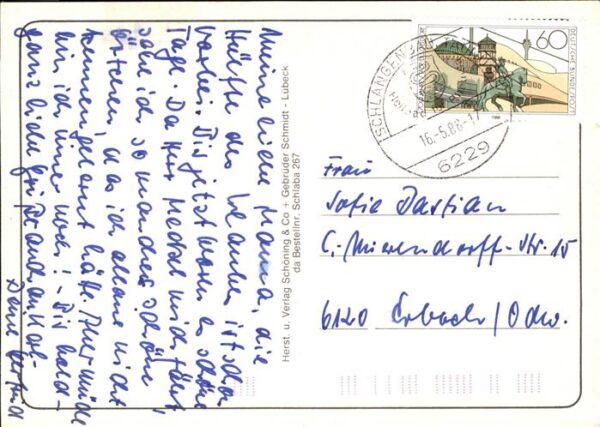 Meine liebe Mama, die
Hälfte des Urlaubs ist schon
vorbei. Bis jetzt waren es schöne
Tage. Da Kurt Medak mich fährt,
sehe ich so manches schöne
was ich alleine nicht
kennengelernt hätte. Aber müde
bin ich immer noch! - Bis bald -
ganz liebe Grüße
Deine
Herst. u. Verlag Schöning & Co + Gebrüder Schmidt - Lübeck
da Bestellnr. Schlaba 267
SCHLANGENBAD
16.-5.88-17
6229
60
DEUTSCHE BUNDESPOST
Frau
Sofie Bastian
C.-Mierendorff-Str. 15
6120 Erbach/Odw.